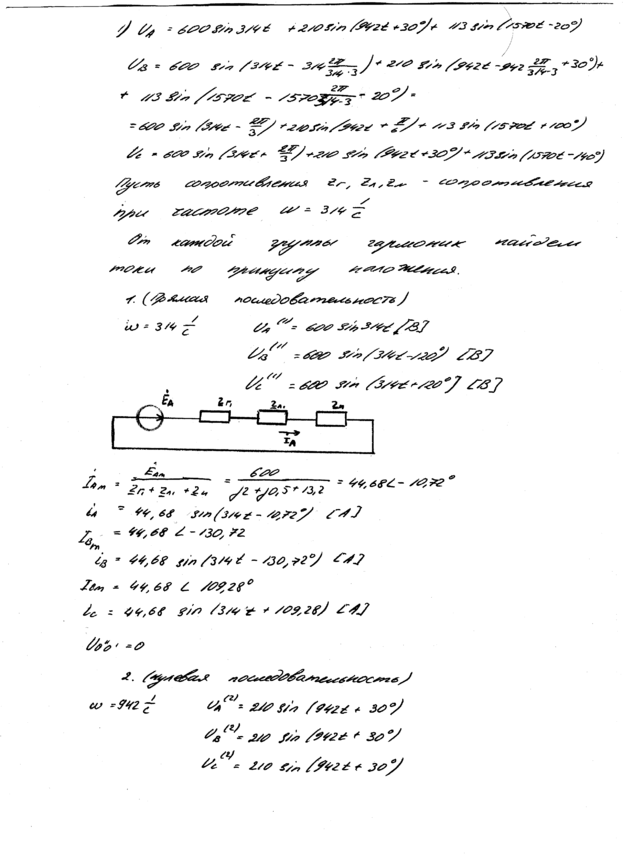 1) U_A = 600 sin 314t + 210 sin (942t+30°) + 113 sin (1570t-20°)
U_B = 600 sin (314t - 314 2π/(314·3)) + 210 sin (942t - 942 2π/(314·3) + 30°) +
+ 113 sin (1570t - 1570 2π/(314·3) - 20°) =
= 600 sin (314t - 2π/3) + 210 sin (942t + π/6) + 113 sin (1570t + 100°)
U_C = 600 sin (314t + 2π/3) + 210 sin (942t + 30°) + 113 sin (1570t - 140°)
Пусть сопротивления Zг, Zл, Zн - сопротивления
при частоте ω = 314 1/с
От каждой группы гармоник найдем
токи по принципу наложения.
1. (Прямая последовательность)
ω = 314 1/с U_A^(1) = 600 sin 314t [В]
U_B^(1) = 600 sin (314t-120°) [В]
U_C^(1) = 600 sin (314t+120°] [В]
Ė_A Zг₁ Zл₁ Zн
İ_A
İ_Am = Ė_Am / (Zг₁ + Zл₁ + Zн) = 600 / (j2 + j0,5 + 13,2) = 44,68 ∠ -10,72°
i_A = 44,68 sin (314t - 10,72°) [А]
İ_Bm = 44,68 ∠ -130,72
i_B = 44,68 sin (314t - 130,72°) [А]
I_cm = 44,68 ∠ 109,28°
i_C = 44,68 sin (314t + 109,28) [А]
U_0''0' = 0
2. (нулевая последовательность)
ω = 942 1/с U_A^(2) = 210 sin (942t + 30°)
U_B^(2) = 210 sin (942t + 30°)
U_C^(2) = 210 sin (942t + 30°)